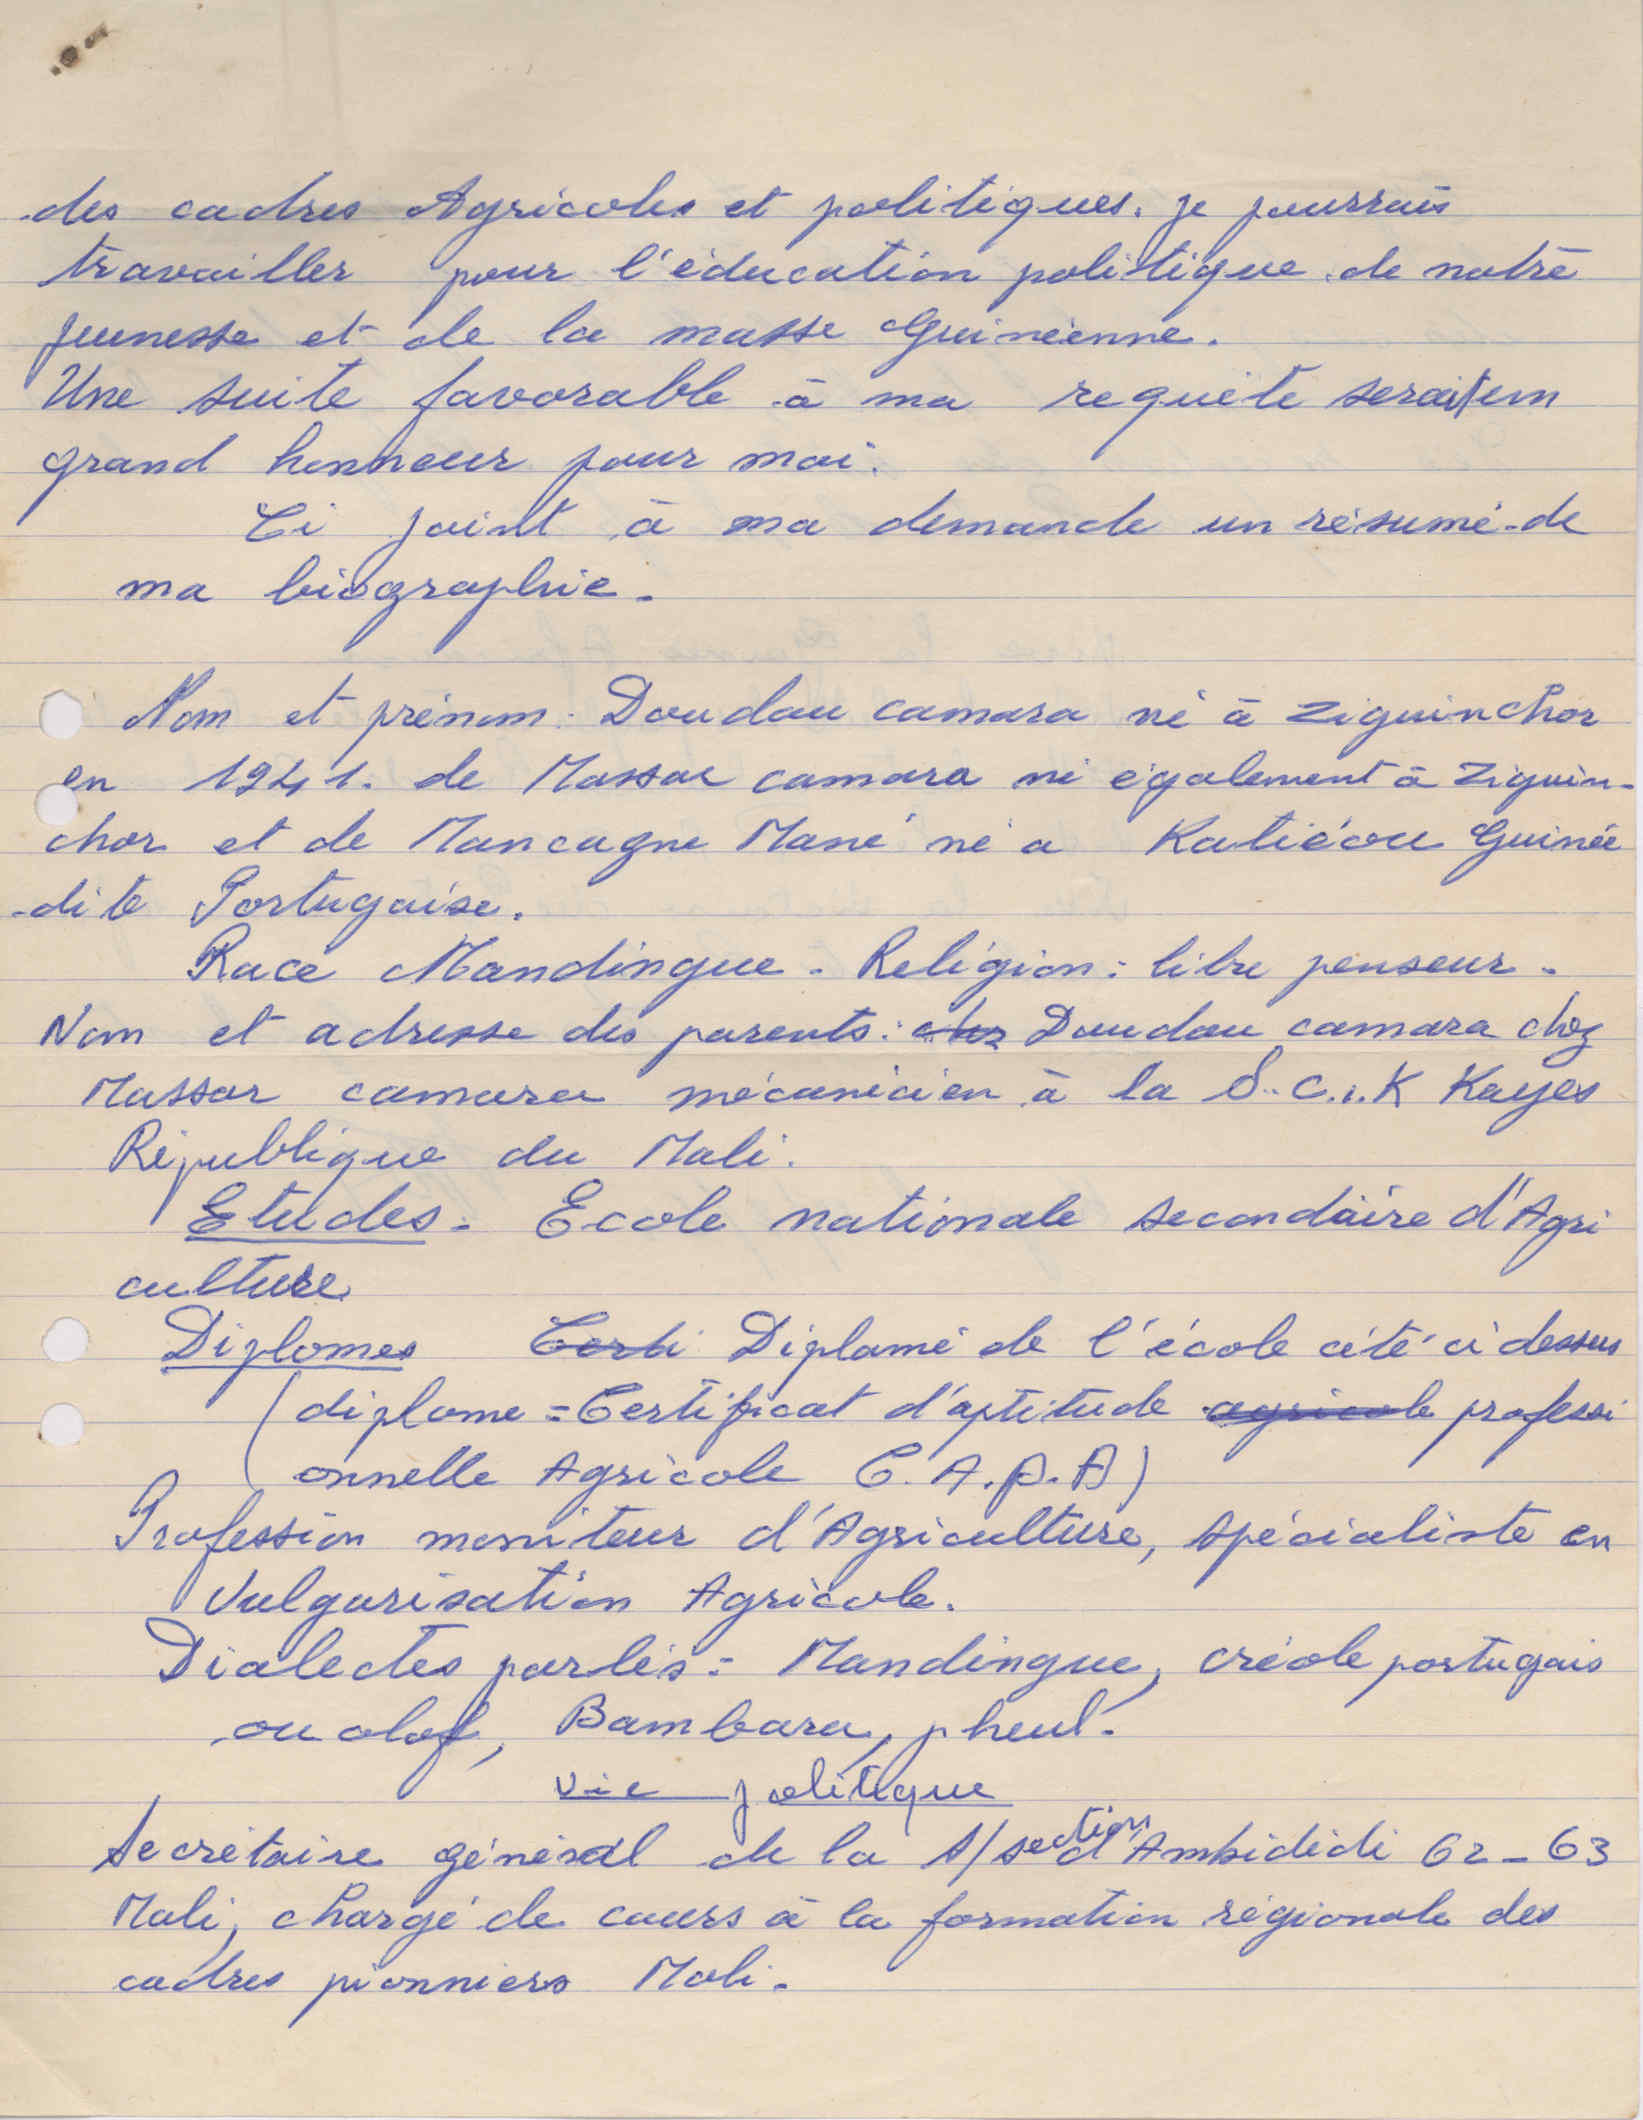 des cadres Agricoles et politiques. je pourrais
travailler pour l'éducation politique de notre
jeunesse et de la masse Guinéenne.
Une suite favorable à ma requête serait un
grand honneur pour moi.
Ci joint à ma demande un résumé de
ma biographie.
Nom et prénom : Doudou camara né à Ziguinchor
en 1941. de Massar camara né également à Ziguin-
chor et de Mancagne Mané né a Katiéou Guinée
dite Portugaise.
Race Mandingue - Religion : libre penseur -
Nom et adresse des parents : chez Doudou camara chez
Massar camara mécanicien à la S.C.I.K Kayes
République du Mali.
Etudes - Ecole nationale secondaire d'Agri
culture
Diplomes Certi Diplomé de l'école cité ci dessus
(diplome = Certificat d'aptitude agricole professi
onnelle Agricole C.A.P.A)
Profession moniteur d'Agriculture, spécialiste en
Vulgarisation Agricole.
Dialectes parlés = Mandingue, créole portugais
ouolof, Bambara, pheul.
Vie politique
Secrétaire général de la S/section d'Ambidédi 62-63
Mali, chargé de cours à la formation régionale des
cadres pionniers Mali.